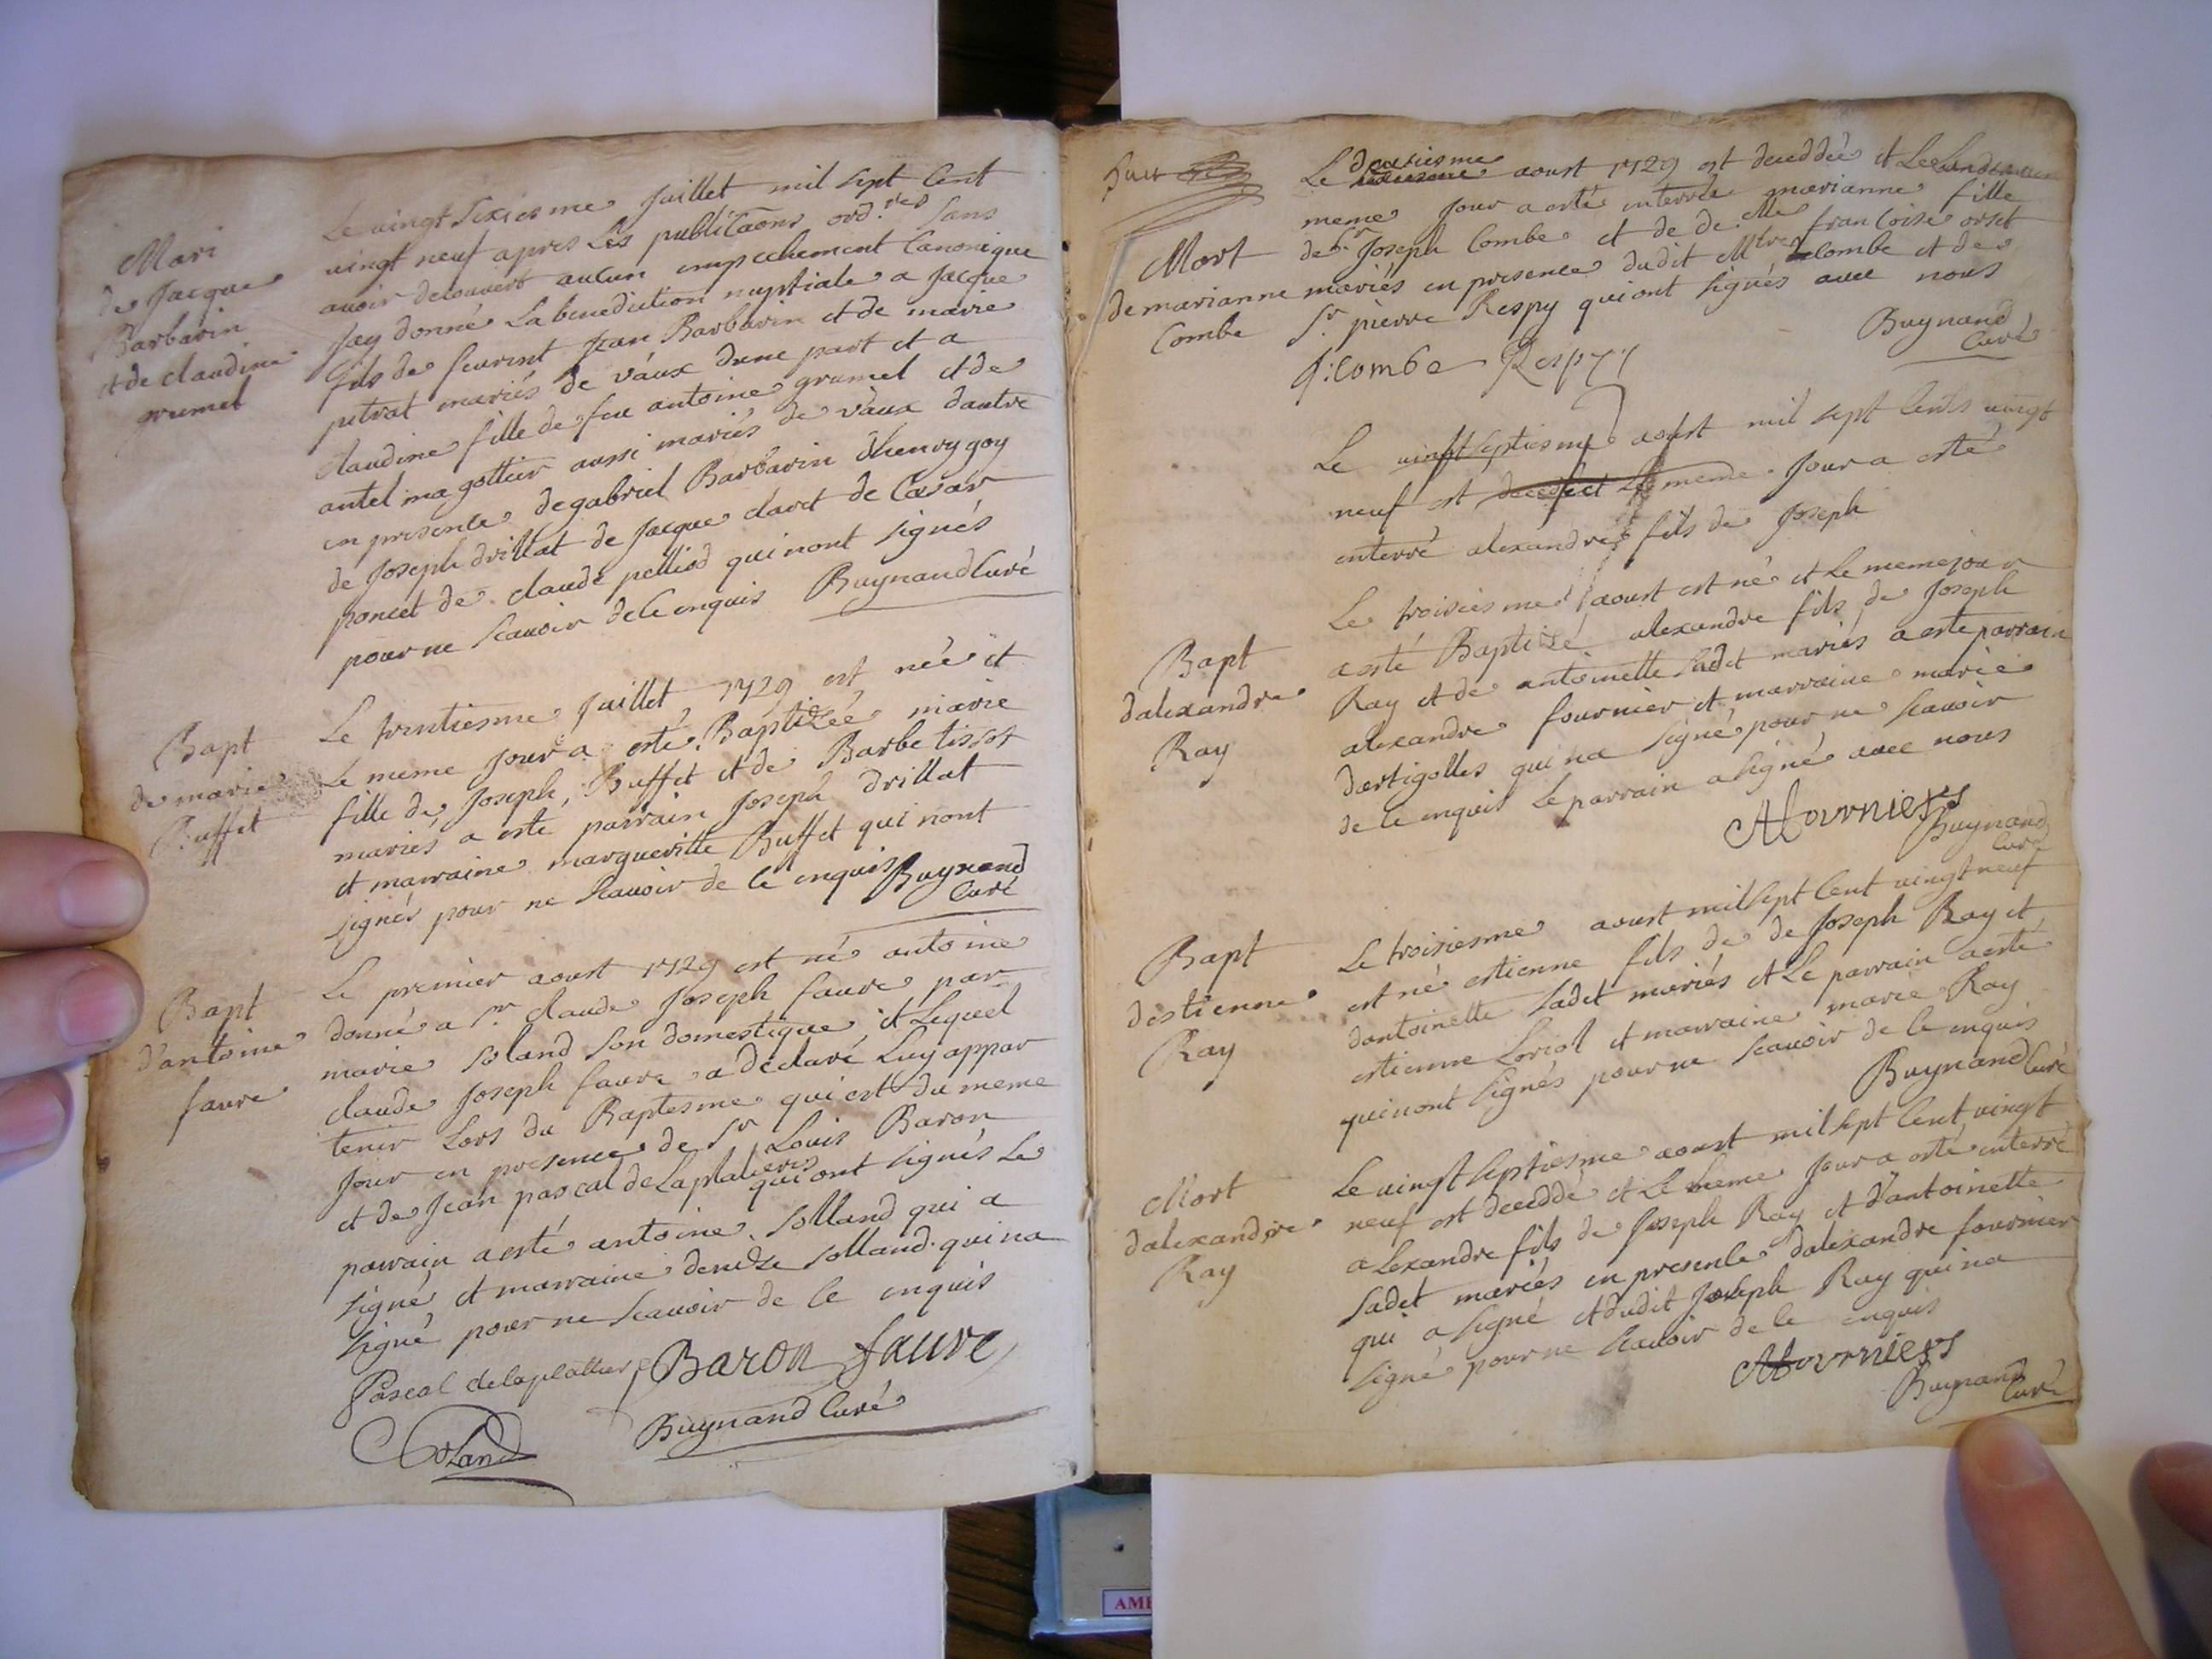 Mari
de Jacque
Barbarin
et de claudine
grumel
Le vingt sixiesme Juillet mil sept cent
vingt neuf apres Les publicaons ord.res sans
avoir decouvert aucun empechement Canonique
Jay donné La benediction nuptiale a Jacque
fils de feurent Jean Barbarin et de marie
pitrat mariés de vaux dune part et a
claudine fille de feu antoine grumel et de
antel ma gottier aussi mariés de vaux dautre
en presence de gabriel Barbarin dhenry goy
de Joseph drillat de Jacque claret de Cesar
poncet de claude pelliod qui nont signés
pour ne scavoir de ce enquis Buynand Curé
Bapt
de marie
Buffet
Le trentiesme Juillet 1729 est née et
Le meme Jour a esté Baptizée marie
fille de Joseph Buffet et de Barbe tissot
mariés a este parrain Joseph drillat
et marraine margueritte Buffet qui nont
signés pour ne scavoir de ce enquis Buynand
Curé
Bapt
d'antoine
faure
Le premier aoust 1729 est né antoine
donné a Sr. claude Joseph faure par
marie soland son domestique et Lequel
claude Joseph faure a declaré Luy appar
tenir Lors du Baptesme qui est du meme
Jour en presence de Sr Louis Baron
et de Jean pascal de Laplatieres qui ont signés Le
parrain a esté antoine solland qui a
signé et marraine denize solland qui na
signé pour ne scavoir de ce enquis
Pascal delaplattiere Baron faure
Soland
Buynand Curé
Le deusiesme aoust 1729 est deceddée et Le Landemain
meme Jour a esté enterrée marianne fille
Mort
de marianne
Combe
de Sr Joseph Combe et de de.elle francoise orset
mariés en presence dudit Mtre combe et de
Sr. pierre Respy qui ont signés avec nous
Buynand
Curé
J: combe Respy
Le vingt septiesme aoust mil sept Cents vingt
neuf est decedé et Le meme Jour a esté
enterré alexandre fils de Joseph
Bapt
dalexandre
Ray
Le troisiesme aoust est né et Le meme jour
a esté Baptizé alexandre fils de Joseph
Ray et de antoinette sadet mariés a este parrain
alexandre fournier et marraine marie
dertigolles qui na signé pour ne scavoir
de ce enquis Le parrain a signé avec nous
AFourniers
Buynand
Curé
Bapt
destienne
Ray
Le troisiesme aoust mil sept Cent vingt neuf
est né estienne fils de de Joseph Ray et
dantoinette sadet mariés et Le parrain a esté
estienne Loriol et marraine marie Ray
qui nont signés pour ne scavoir de ce enquis
Buynand Curé
Mort
dalexandre
Ray
Le vingt septiesme aoust mil sept Cent vingt
neuf est deceddé et Le meme Jour a esté enterré
aLexandre fils de Joseph Ray et dantoinette
sadet mariés en presence dalexandre fournier
qui a signé et dudit Joseph Ray qui na
signé pour ne scavoir de ce enquis
AFourniers
Buynand
Curé
AM